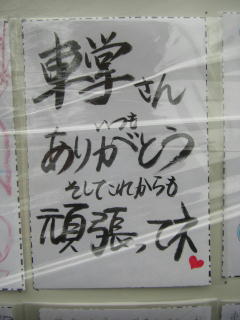 車掌さん
いつも
ありがとう
そしてこれからも
頑張ってネ